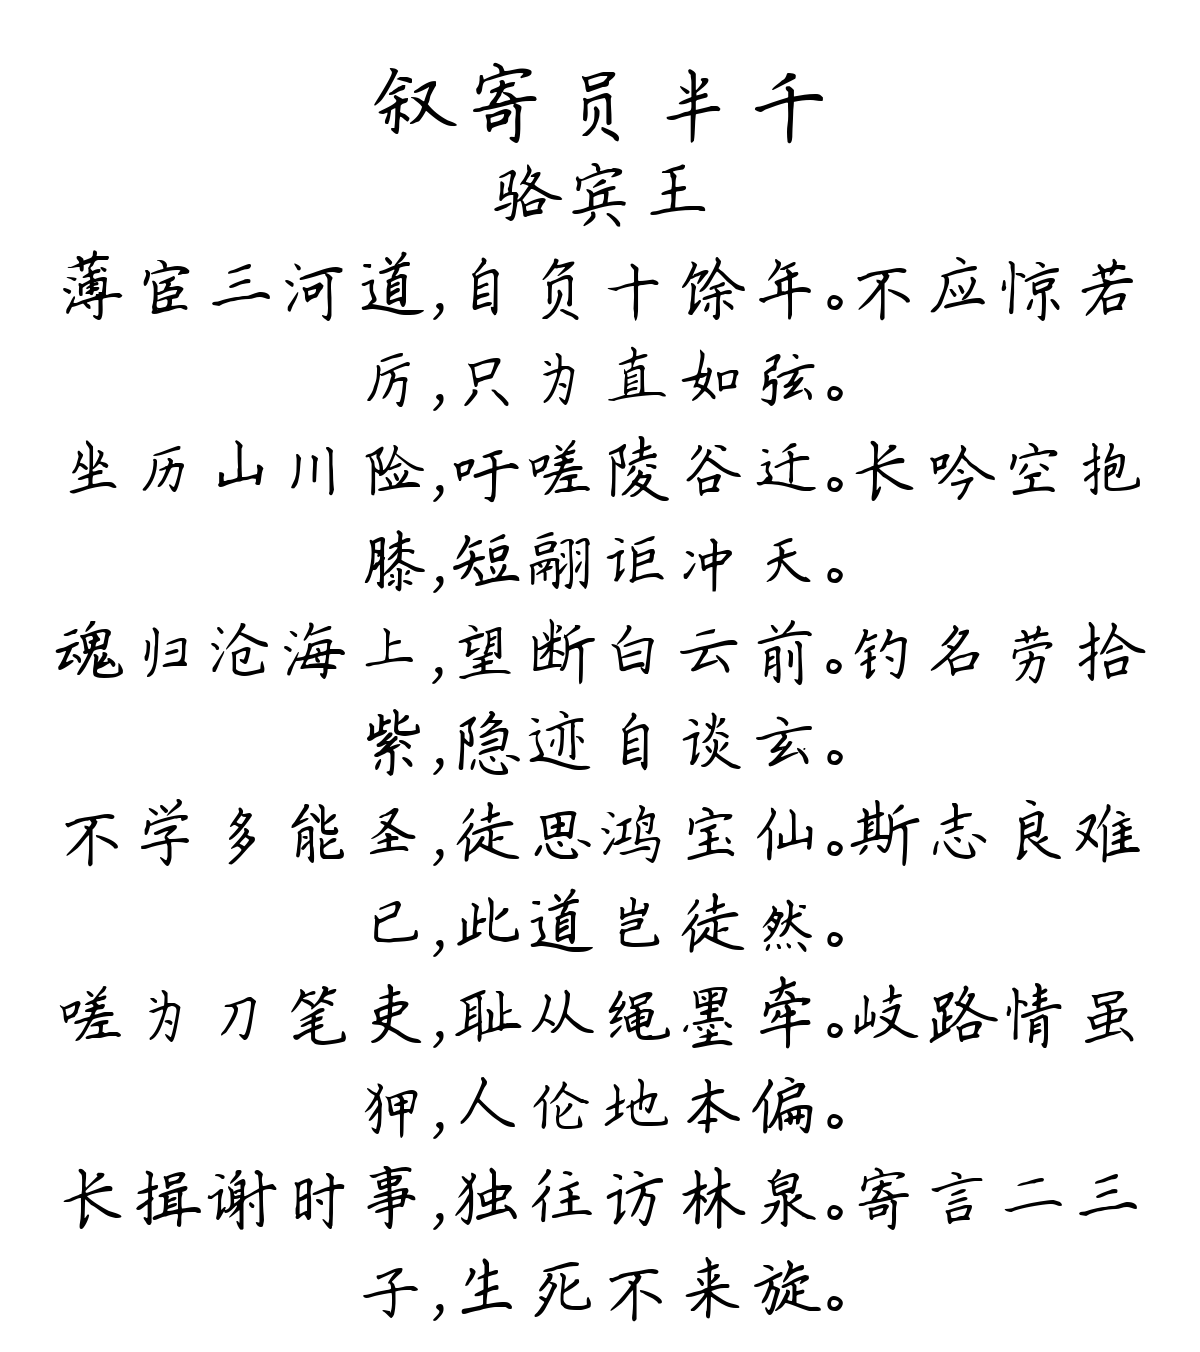 叙寄员半千
骆宾王
薄宦三河道,自负十馀年。不应惊若
厉,只为直如弦。
坐历山川险,吁嗟陵谷迁。长吟空抱
膝,短翮讵冲天。
魂归沧海上,望断白云前。钓名劳拾
紫,隐迹自谈玄。
不学多能圣,徒思鸿宝仙。斯志良难
已,此道岂徒然。
嗟为刀笔吏,耻从绳墨牵。岐路情虽
狎,人伦地本偏。
长揖谢时事,独往访林泉。寄言二三
子,生死不来旋。